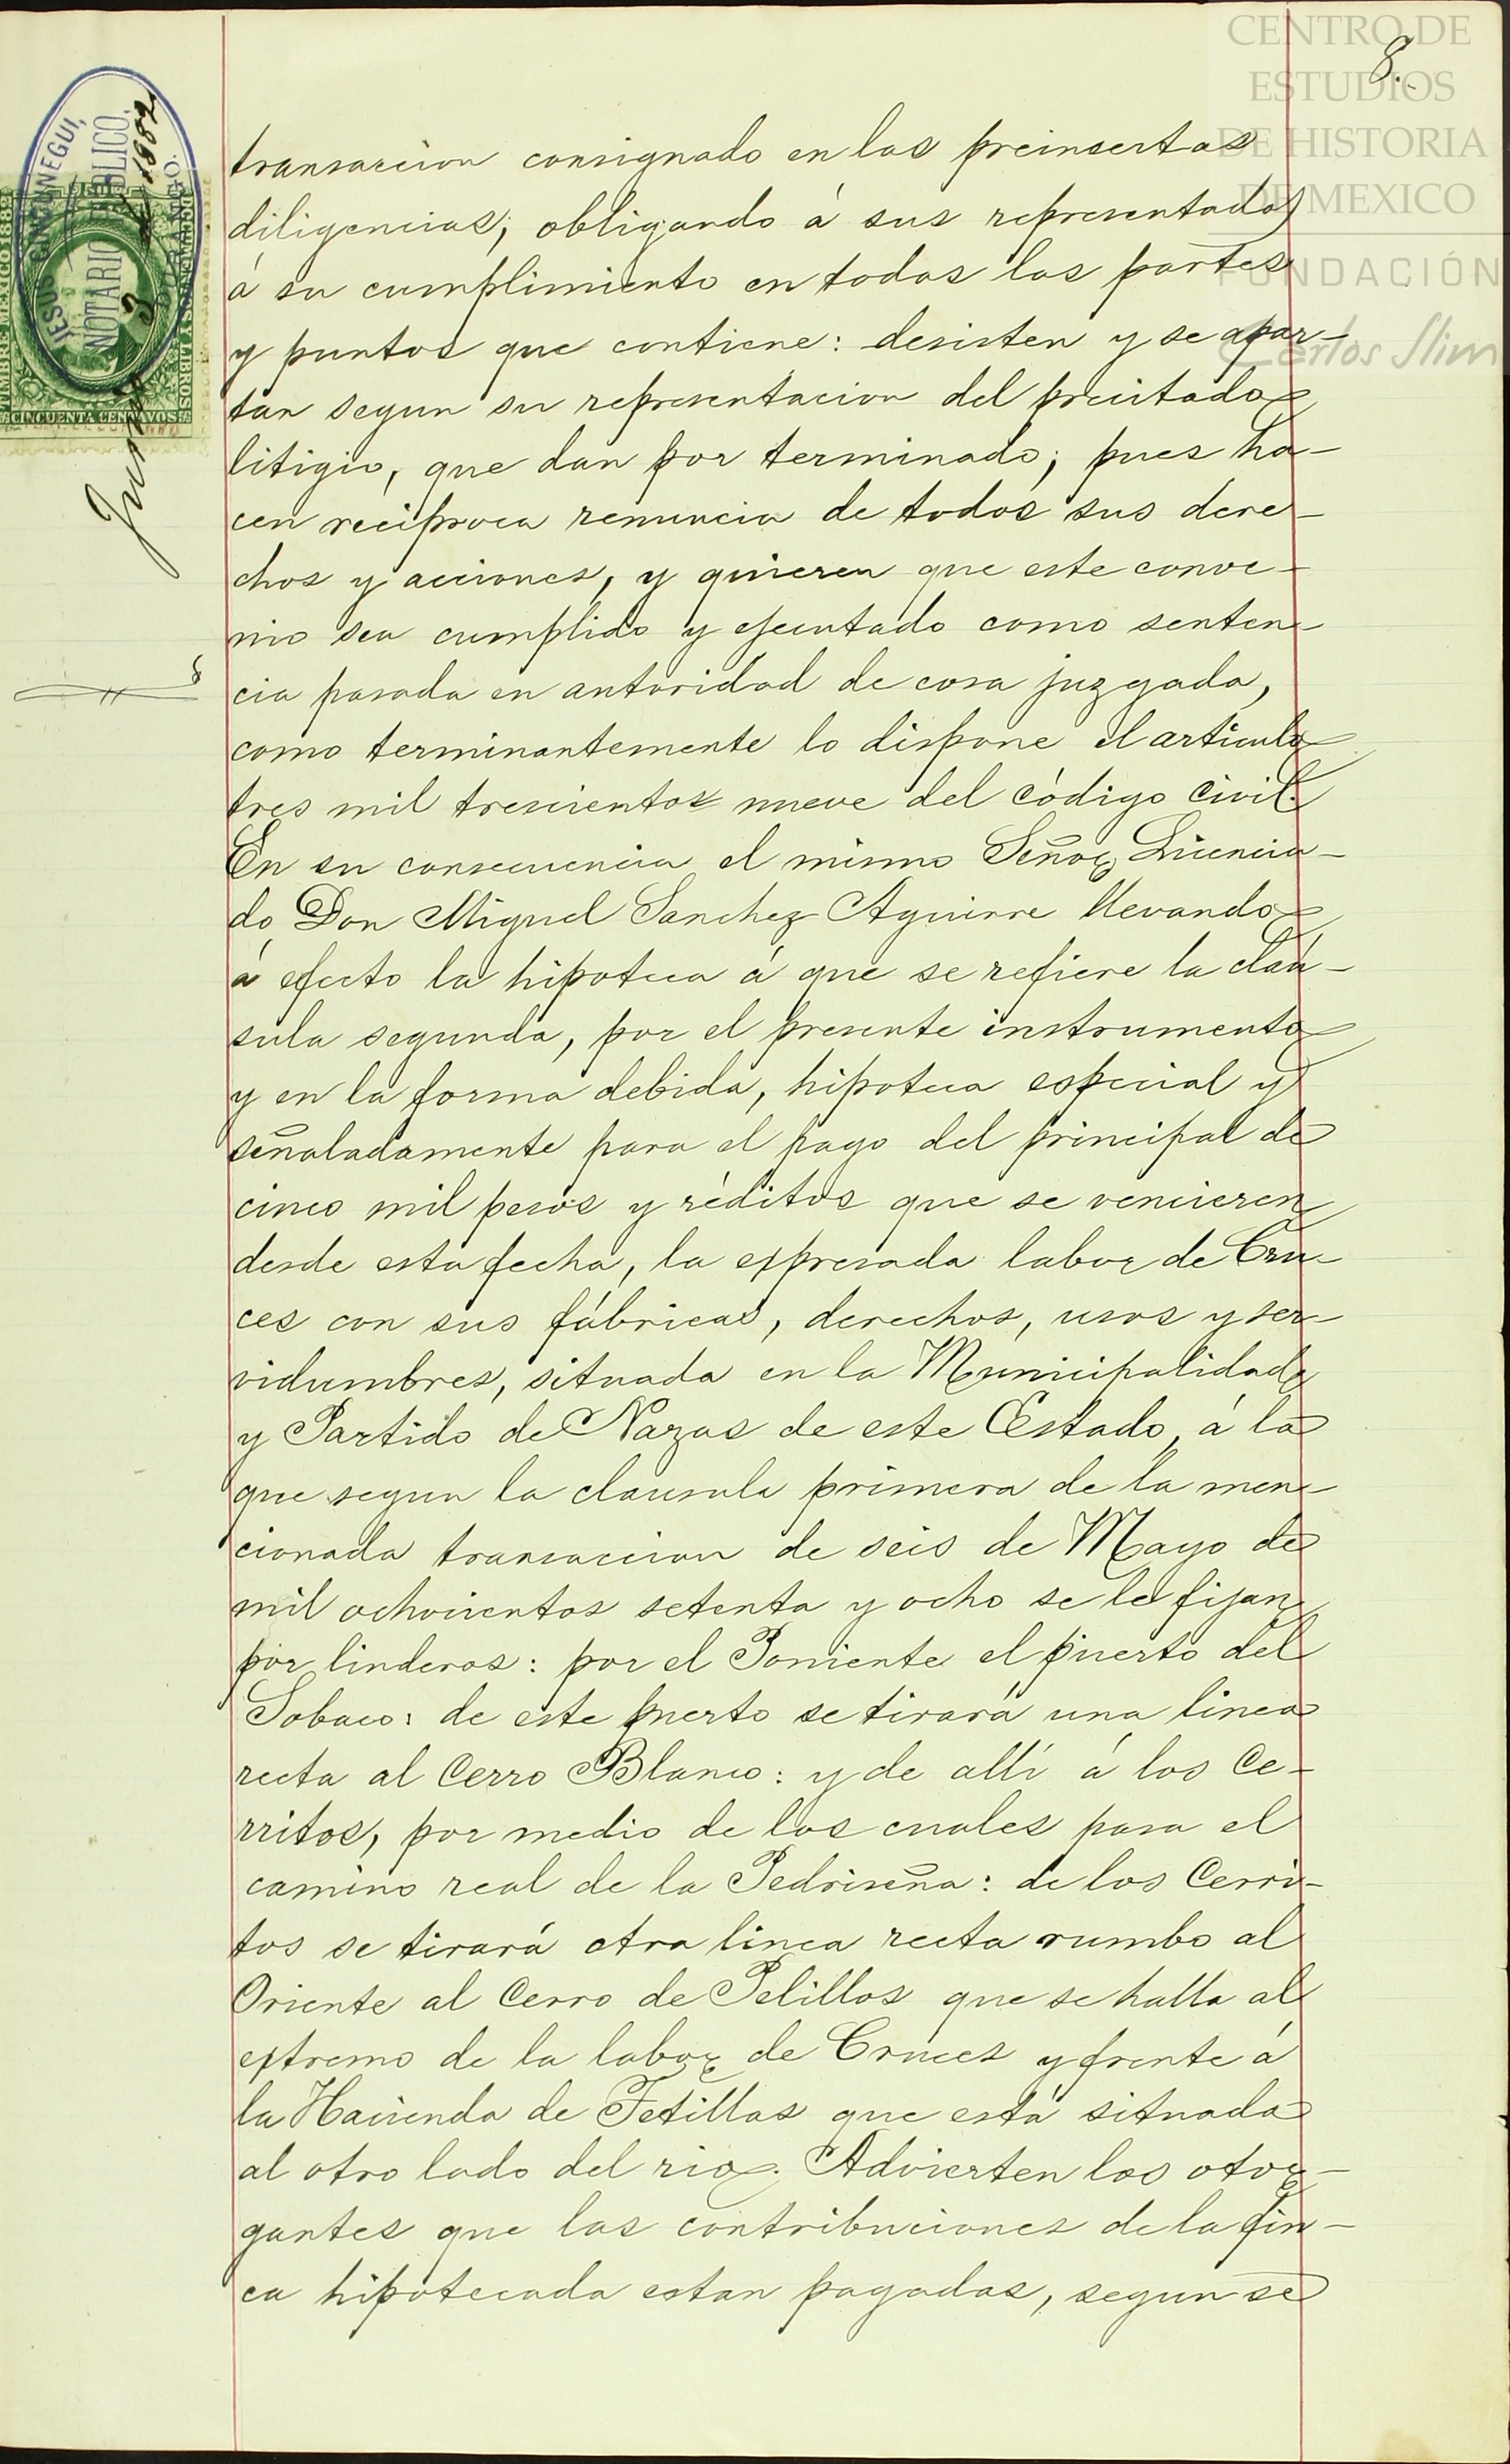 CENTRO DE
ESTUDIOS
DE HISTORIA
DE MEXICO
FUNDACIÓN
Carlos Slim
8.
JESUS CINCUNEGUI,
NOTARIO PUBLICO.
DURANGO.
CINCUENTA CENTAVOS
Junio 3 de 1882
transaccion consignado en las preinsertas
diligencias; obligando á sus representados
á su cumplimiento en todas las partes
y puntos que contiene: desisten y se apar-
tan segun su representacion del precitado
litigio, que dan por terminado; pues ha-
cen reciproca renuncia de todos sus dere-
chos y acciones, y quieren que este conve-
nio sea cumplido y ejecutado como senten-
cia pasada en autoridad de cosa juzgada,
como terminantemente lo dispone el articulo
tres mil trescientos nueve del código civil.
En su consecuencia el mismo Señor Licencia-
do Don Miguel Sanchez Aguirre llevando
á efecto la hipoteca á que se refiere la cláu-
sula segunda, por el presente instrumento
y en la forma debida, hipoteca especial y
señaladamente para el pago del principal de
cinco mil pesos y réditos que se vencieren
desde esta fecha, la expresada labor de Cru-
ces con sus fábricas, derechos, usos y ser-
vidumbres, situada en la Municipalidad
y Partido de Nazas de este Estado, á la
que segun la clausula primera de la men-
cionada transaccion de seis de Mayo de
mil ochocientos setenta y ocho se le fijan
por linderos: por el Poniente el puerto del
Sobaco: de este puerto se tirará una linea
recta al Cerro Blanco: y de allí á los Ce-
rritos, por medio de los cuales pasa el
camino real de la Pedriseña: de los Cerri-
tos se tirará otra linea recta rumbo al
Oriente al Cerro de Pelillos que se halla al
extremo de la labor de Cruces y frente á
la Hacienda de Tetillas que está situada
al otro lado del rio. Advierten los otor-
gantes que las contribuciones de la fin-
ca hipotecada estan pagadas, segun se